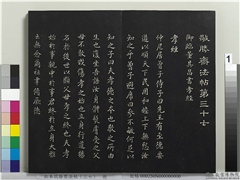 敬勝齋法帖第三十七
御臨董其昌書孝經
孝經
仲尼居曾子侍子曰先王有至德要
道以順天下民用和睦上下無怨汝
知之乎曾子避席曰參不敏何足以
知之子曰夫孝德之本也教之所由
生也復坐吾語汝身體髮膚受之父
母不敢毀傷孝之始也立身行道揚
名於後世以顯父母孝之終也夫孝
始於事親中於事君終於立身大雅
云無念爾祖聿脩厥德